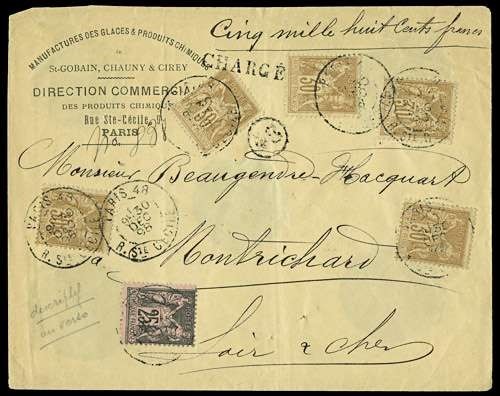 MANUFACTURES DES GLACES & PRODUITS CHIMIQUES
de
ST-GOBAIN, CHAUNY & CIREY
DIRECTION COMMERCIALE
DES PRODUITS CHIMIQUES
Rue Ste-Cécile, 9
PARIS
Cinq mille huit cents francs
CHARGÉ
Monsieur Beaugendre-Macquart
à
Montrichard
Loir & cher
PARIS 48
30
DEC
R. STE CÉCILE
25
descriptif
au verso